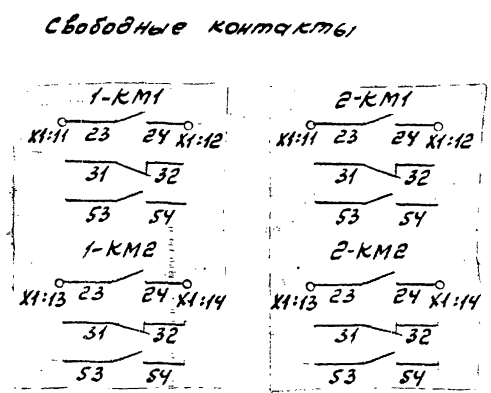 Свободные контакты
1-KM1
X1:11 23 24 X1:12
31 32
53 54
1-KM2
X1:13 23 24 X1:14
31 32
53 54
2-KM1
X1:11 23 24 X1:12
31 32
53 54
2-KM2
X1:13 23 24 X1:14
31 32
53 54